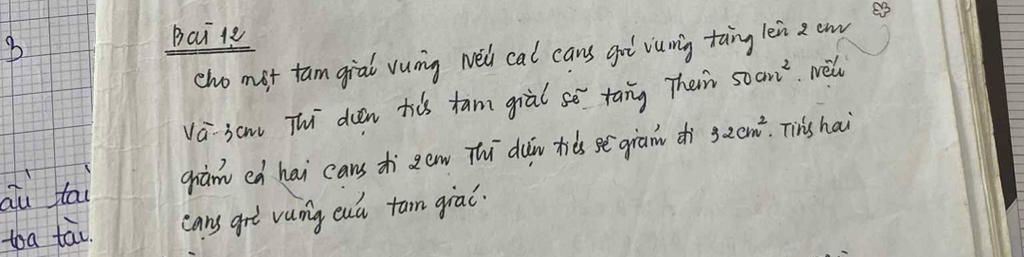 3
Bài 12
cho một tam giác vuông nếu các cạnh góc vuông tăng lên 2 cm
Và 3 cm Thì diện tích tam giác sẽ tăng Thêm 50cm². Nếu
giảm cả hai cạnh đi 2 cm Thì diện tích sẽ giảm đi 32cm². Tính hai
cạnh góc vuông của tam giác.
tài
toa tàu.